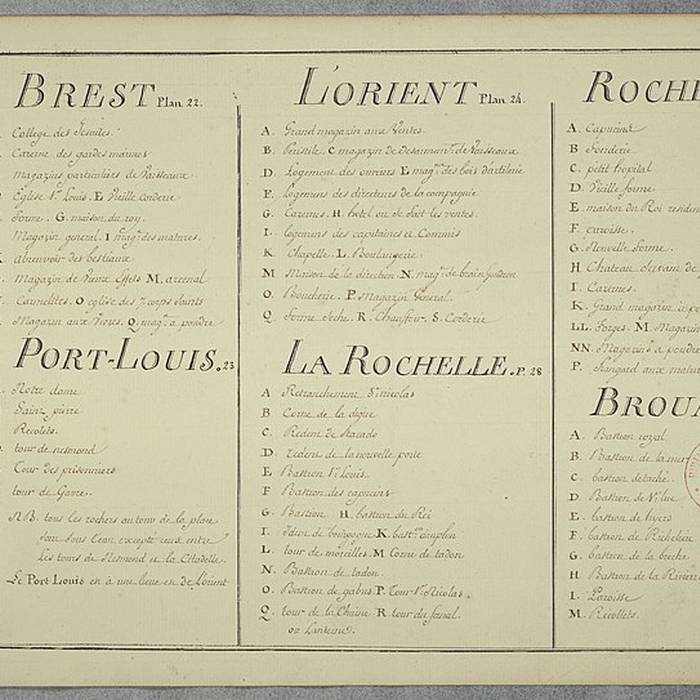 BREST Plan 22.
College des Jesuites.
Caserne des gardes marines
magazins particuliers de Vaisseaux
Eglise St. Louis. E Vieille corderie
forme. G. maison du roy.
Magazin general. I mag. des matures.
abreuvoir des bestiaux
Magazin de Vieux Effets M. arcenal
Carmelites. O eglise des 7 corps saints
Magazin aux Vivres. Q. mag. a poudre
PORT-LOUIS. 23
Notre dame
Saint pierre
Recolets.
tour de nesmond
Tour des prisonniers
tour de Gavre.
N.B. tous les rochers autour de la place
sont sous l'eau excepté ceux entre
Les tours de Nesmond et la Citadelle.
Le Port Louis est à une lieue en de Lorient
L'ORIENT Plan 24.
A. Grand magazin aux Ventes.
B. Peristile C magazin de Desarmmt. de Vaisseaux
D. Logement des ouvriers E mag. des bois d'artilerie
F. Logemens des directeurs de la compagnie
G. Cazernes. H. hotel ou se fait les ventes.
I. logemens des capitaines et Commis
K. Chapelle. L. Boulangerie.
M Maison de la direction. N. mag. de brain Goudron
O. Boucherie. P. Magazin General.
Q. Forme Seche. R. Chauffoir. S. Corderie
LA ROCHELLE. P. 28
A Retranchement St. nicolas
B Corne de la digue
C. Redent de Stacado
D. redent de la nouvelle porte
E Bastion St. Louis
F Bastion des capucins
G. Bastion H. bastion du Roi
I. Idem de bourgogne K. bastion
L. tour de moreilles. M Corne de tadon
N. Bastion de tadon.
O. Bastion de gabus P. Tour St. Nicolas.
Q. tour de la Chaine R. tour du fanal
ou Lanterne.
ROCHE
A. Capucins
B Fonderie
C. petit hopital
D. Vieille forme
E. maison du Roi residen
F. paroisse.
G. Nouvelle forme.
H. Chateau servant de
I. Cazernes.
K. Grand magazin
LL. Forges. M. Magazin
NN. Magazins a poudre
P. Hangard aux matur
BROUA
A. Bastion royal
B. Bastion de la mer
C. bastion detaché.
D. Bastion de
E. bastion de hiers
F. bastion de Richelieu
G. bastion de la breche
H Bastion de la Rivier
I. Paroisse
M. Recollets.